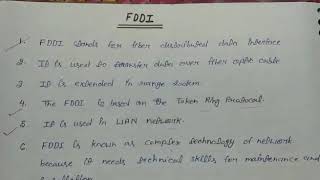 FDDI
1. FDDI stands for fiber distributed data interface
2. It is used to transfer data over fiber optic cable
3. It is extended in range
4. The FDDI is based on the Token Ring Protocol.
5. It is used in LAN network.
6. FDDI is known as complex technology of network
because it needs technical skills for maintenance and